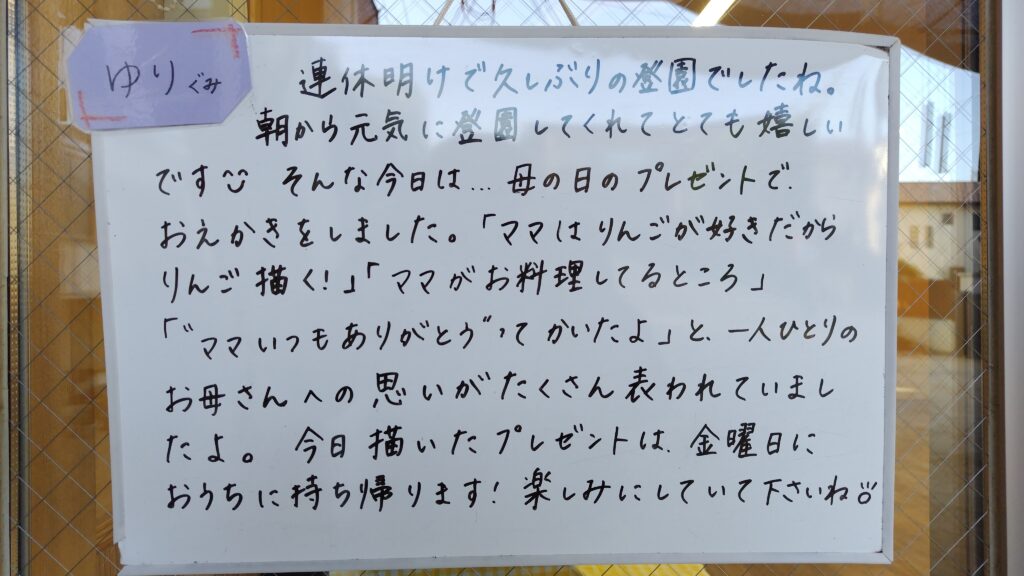 ゆりぐみ
連休明けで久しぶりの登園でしたね。
朝から元気に登園してくれてとても嬉しい
です そんな今日は…母の日のプレゼントで、
おえかきをしました。「ママはりんごが好きだから
りんご描く!」「ママがお料理してるところ」
「"ママいつもありがとう"ってかいたよ」と、一人ひとりの
お母さんへの思いがたくさん表われていまし
たよ。 今日描いたプレゼントは、金曜日に
おうちに持ち帰ります! 楽しみにしていて下さいね